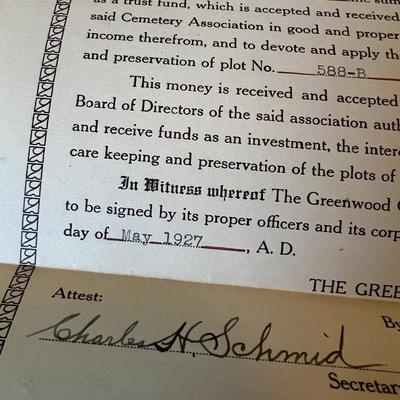 as a trust fund, which is accepted and received
said Cemetery Association in good and proper
income therefrom, and to devote and apply the
and preservation of plot No. 588-B
This money is received and accepted
Board of Directors of the said association auth
and receive funds as an investment, the inter
care keeping and preservation of the plots of
In Witness whereof The Greenwood C
to be signed by its proper officers and its corp
day of May 1927, A. D.
THE GREE
Attest:
By
Charles H. Schmid
Secretar